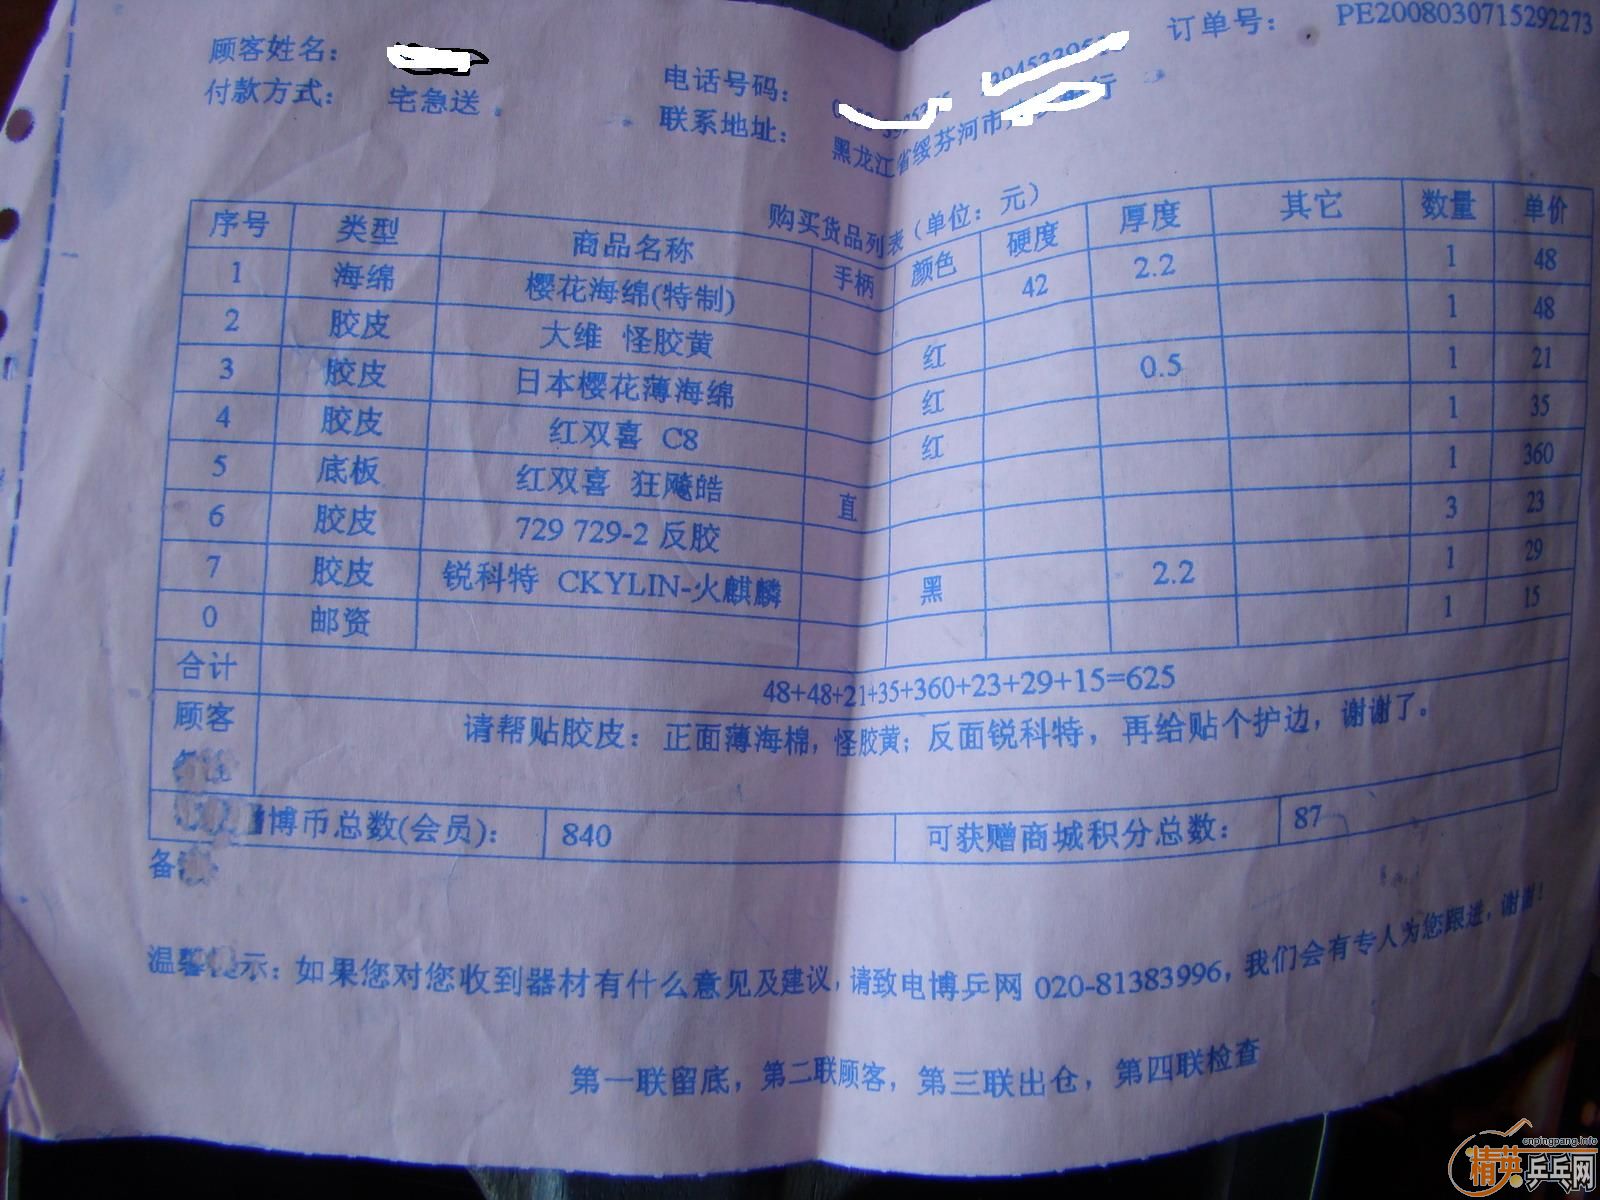 订单号： PE2008030715292273
顾客姓名： 电话号码：
付款方式： 宅急送 联系地址： 黑龙江省绥芬河市 行
购买货品列表（单位：元）
序号 类型 商品名称 手柄 颜色 硬度 厚度 其它 数量 单价
1 海绵 樱花海绵(特制) 42 2.2 1 48
2 胶皮 大维 怪胶黄 红 1 48
3 胶皮 日本樱花薄海绵 红 0.5 1 21
4 胶皮 红双喜 C8 红 1 35
5 底板 红双喜 狂飚皓 直 1 360
6 胶皮 729 729-2 反胶 3 23
7 胶皮 锐科特 CKYLIN-火麒麟 黑 2.2 1 29
0 邮资 1 15
合计 48+48+21+35+360+23+29+15=625
顾客 请帮贴胶皮：正面薄海棉，怪胶黄；反面锐科特，再给贴个护边，谢谢了。
博币总数(会员)： 840 可获赠商城积分总数： 87
备
温馨 示：如果您对您收到器材有什么意见及建议，请致电博乒网 020-81383996，我们会有专人为您跟进，谢谢！
第一联留底，第二联顾客，第三联出仓，第四联检查
cnpingpang.info
精英乒乓网